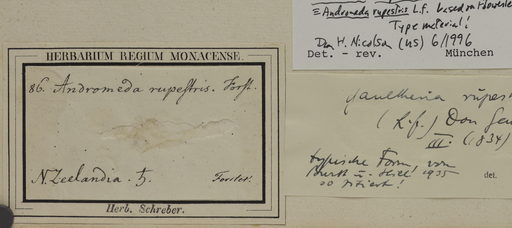 HERBARIUM REGIUM MONACENSE.
86. Andromeda rupestris. Forst.
N. Zeelandia. ♄.
Forster.
Herb. Schreber.
≡ Andromeda rupestris L.f. based on
Type material!
Dan H. Nicolson (US) 6/1996
Det. - rev. München
Gaultheria
(L.f.) Don
III. (1834)
typische Form, von
1935
so zitiert!
det.